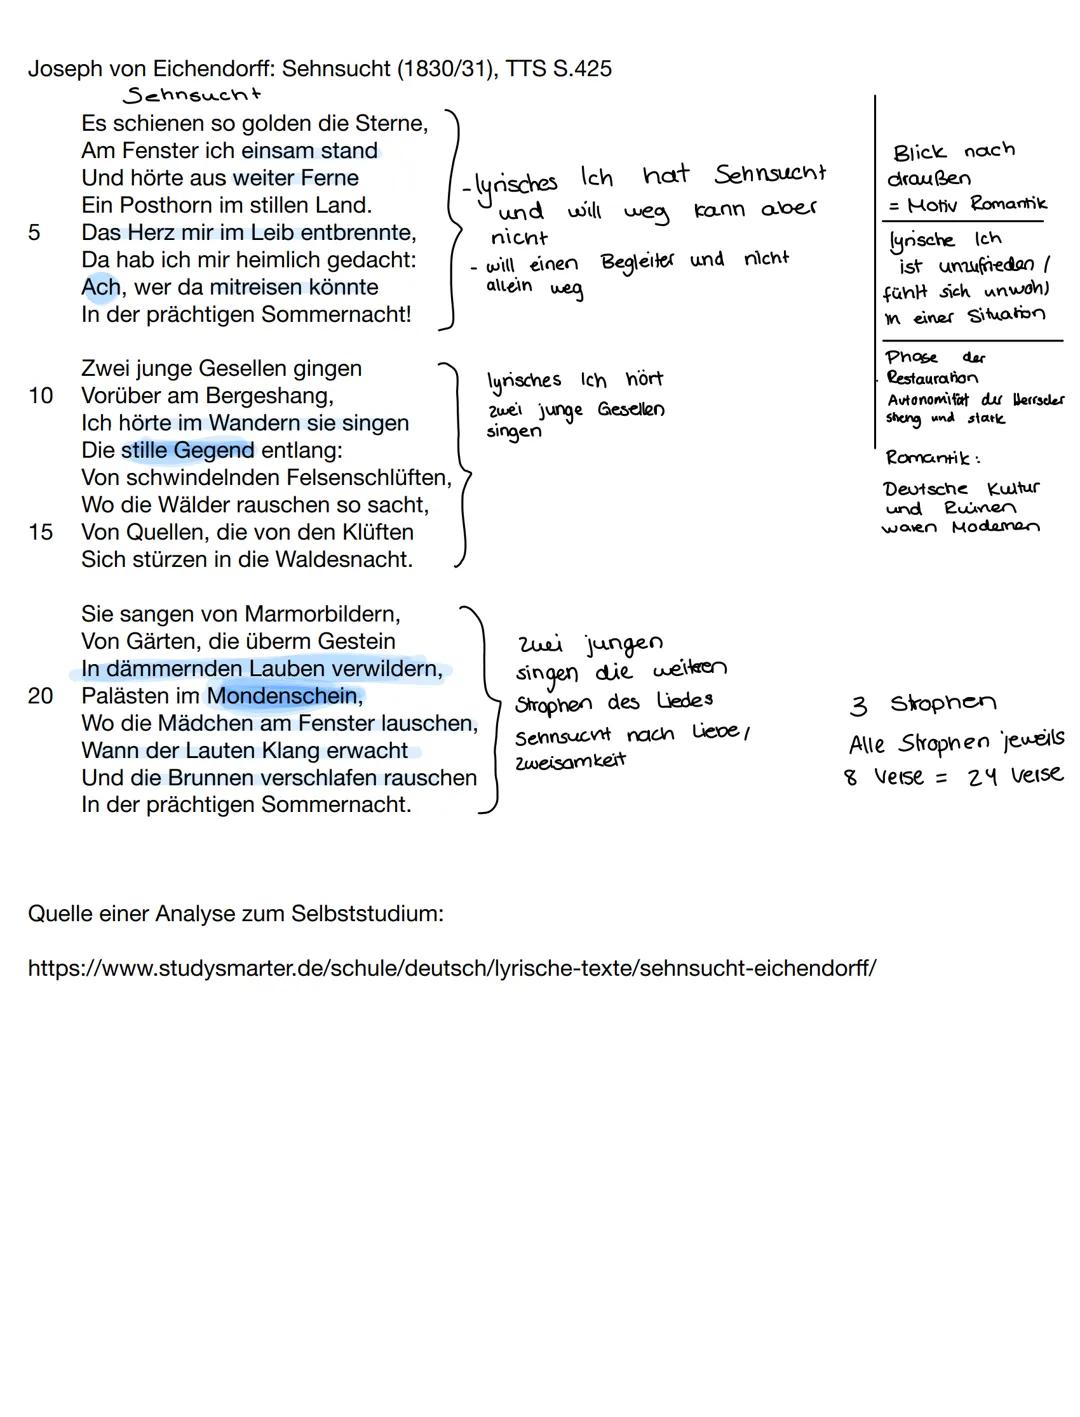 Joseph von Eichendorff: Sehnsucht (1830/31), TTS S.425
Sehnsucht
Es schienen so golden die Sterne,
Am Fenster ich einsam stand
Und hörte aus weiter Ferne
Ein Posthorn im stillen Land.
5 Das Herz mir im Leib entbrennte,
Da hab ich mir heimlich gedacht:
Ach, wer da mitreisen könnte
In der prächtigen Sommernacht!
- lyrisches Ich hat Sehnsucht
und will weg kann aber
nicht
- will einen Begleiter und nicht
allein weg
Zwei junge Gesellen gingen
10 Vorüber am Bergeshang,
Ich hörte im Wandern sie singen
Die stille Gegend entlang:
Von schwindelnden Felsenschlüften,
Wo die Wälder rauschen so sacht,
15 Von Quellen, die von den Klüften
Sich stürzen in die Waldesnacht.
lyrisches Ich hört
zwei junge Gesellen
singen
Sie sangen von Marmorbildern,
Von Gärten, die überm Gestein
In dämmernden Lauben verwildern,
20 Palästen im Mondenschein,
Wo die Mädchen am Fenster lauschen,
Wann der Lauten Klang erwacht
Und die Brunnen verschlafen rauschen
In der prächtigen Sommernacht.
zwei jungen
singen die weitren
Strophen des Liedes
Sehnsucht nach Liebe/
zweisamkeit
Blick nach
draußen
= Motiv Romantik
lyrische Ich
ist unzufrieden /
fühlt sich unwohl
in einer Situation
Phase der
Restauration
Autonomität der Herrscher
streng und stark
Romantik:
Deutsche Kultur
und Ruinen
waren Modernen
3 Strophen
Alle Strophen jeweils
8 Verse = 24 Verse
Quelle einer Analyse zum Selbststudium:
https://www.studysmarter.de/schule/deutsch/lyrische-texte/sehnsucht-eichendorff/